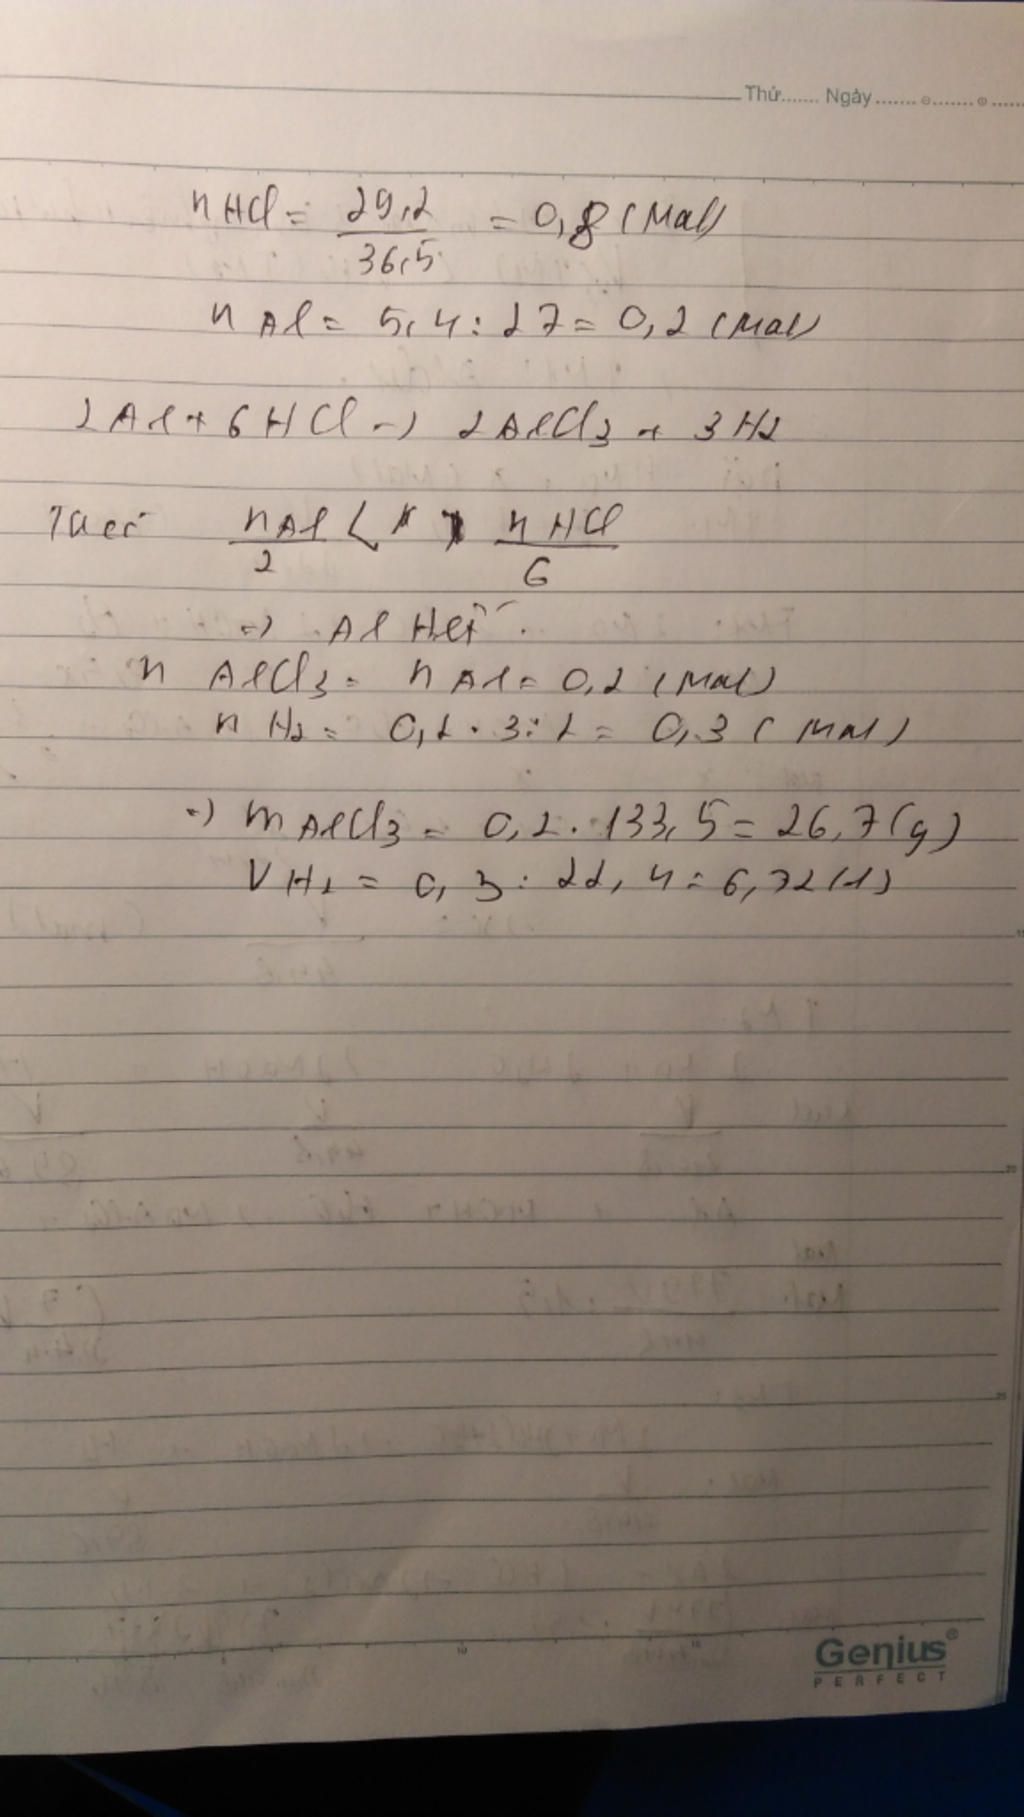 Thứ....... Ngày
nHCl = 29,2 / 36,5 = 0,8 (mol)
nAl = 5,4 : 27 = 0,2 (mol)
2Al + 6HCl -> 2AlCl3 + 3H2
nAl / 2 < nHCl / 6
=> Al Hết.
n AlCl3 = nAl = 0,2 (mol)
n H2 = 0,2 . 3 : 2 = 0,3 (mol)
=> mAlCl3 = 0,2 . 133,5 = 26,7 (g)
VH2 = 0,3 : 22,4 = 6,72 (l)
Genius
PERFECT